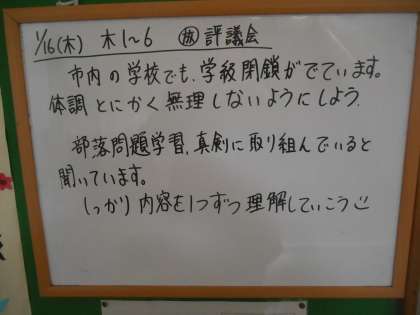 1/16(木) 木1～6 ㊛評議会
市内の学校でも、学級閉鎖がでています。
体調とにかく無理しないようにしよう.
部落問題学習、真剣に取り組んでいると
聞いています。
しっかり内容を1つずつ理解していこう